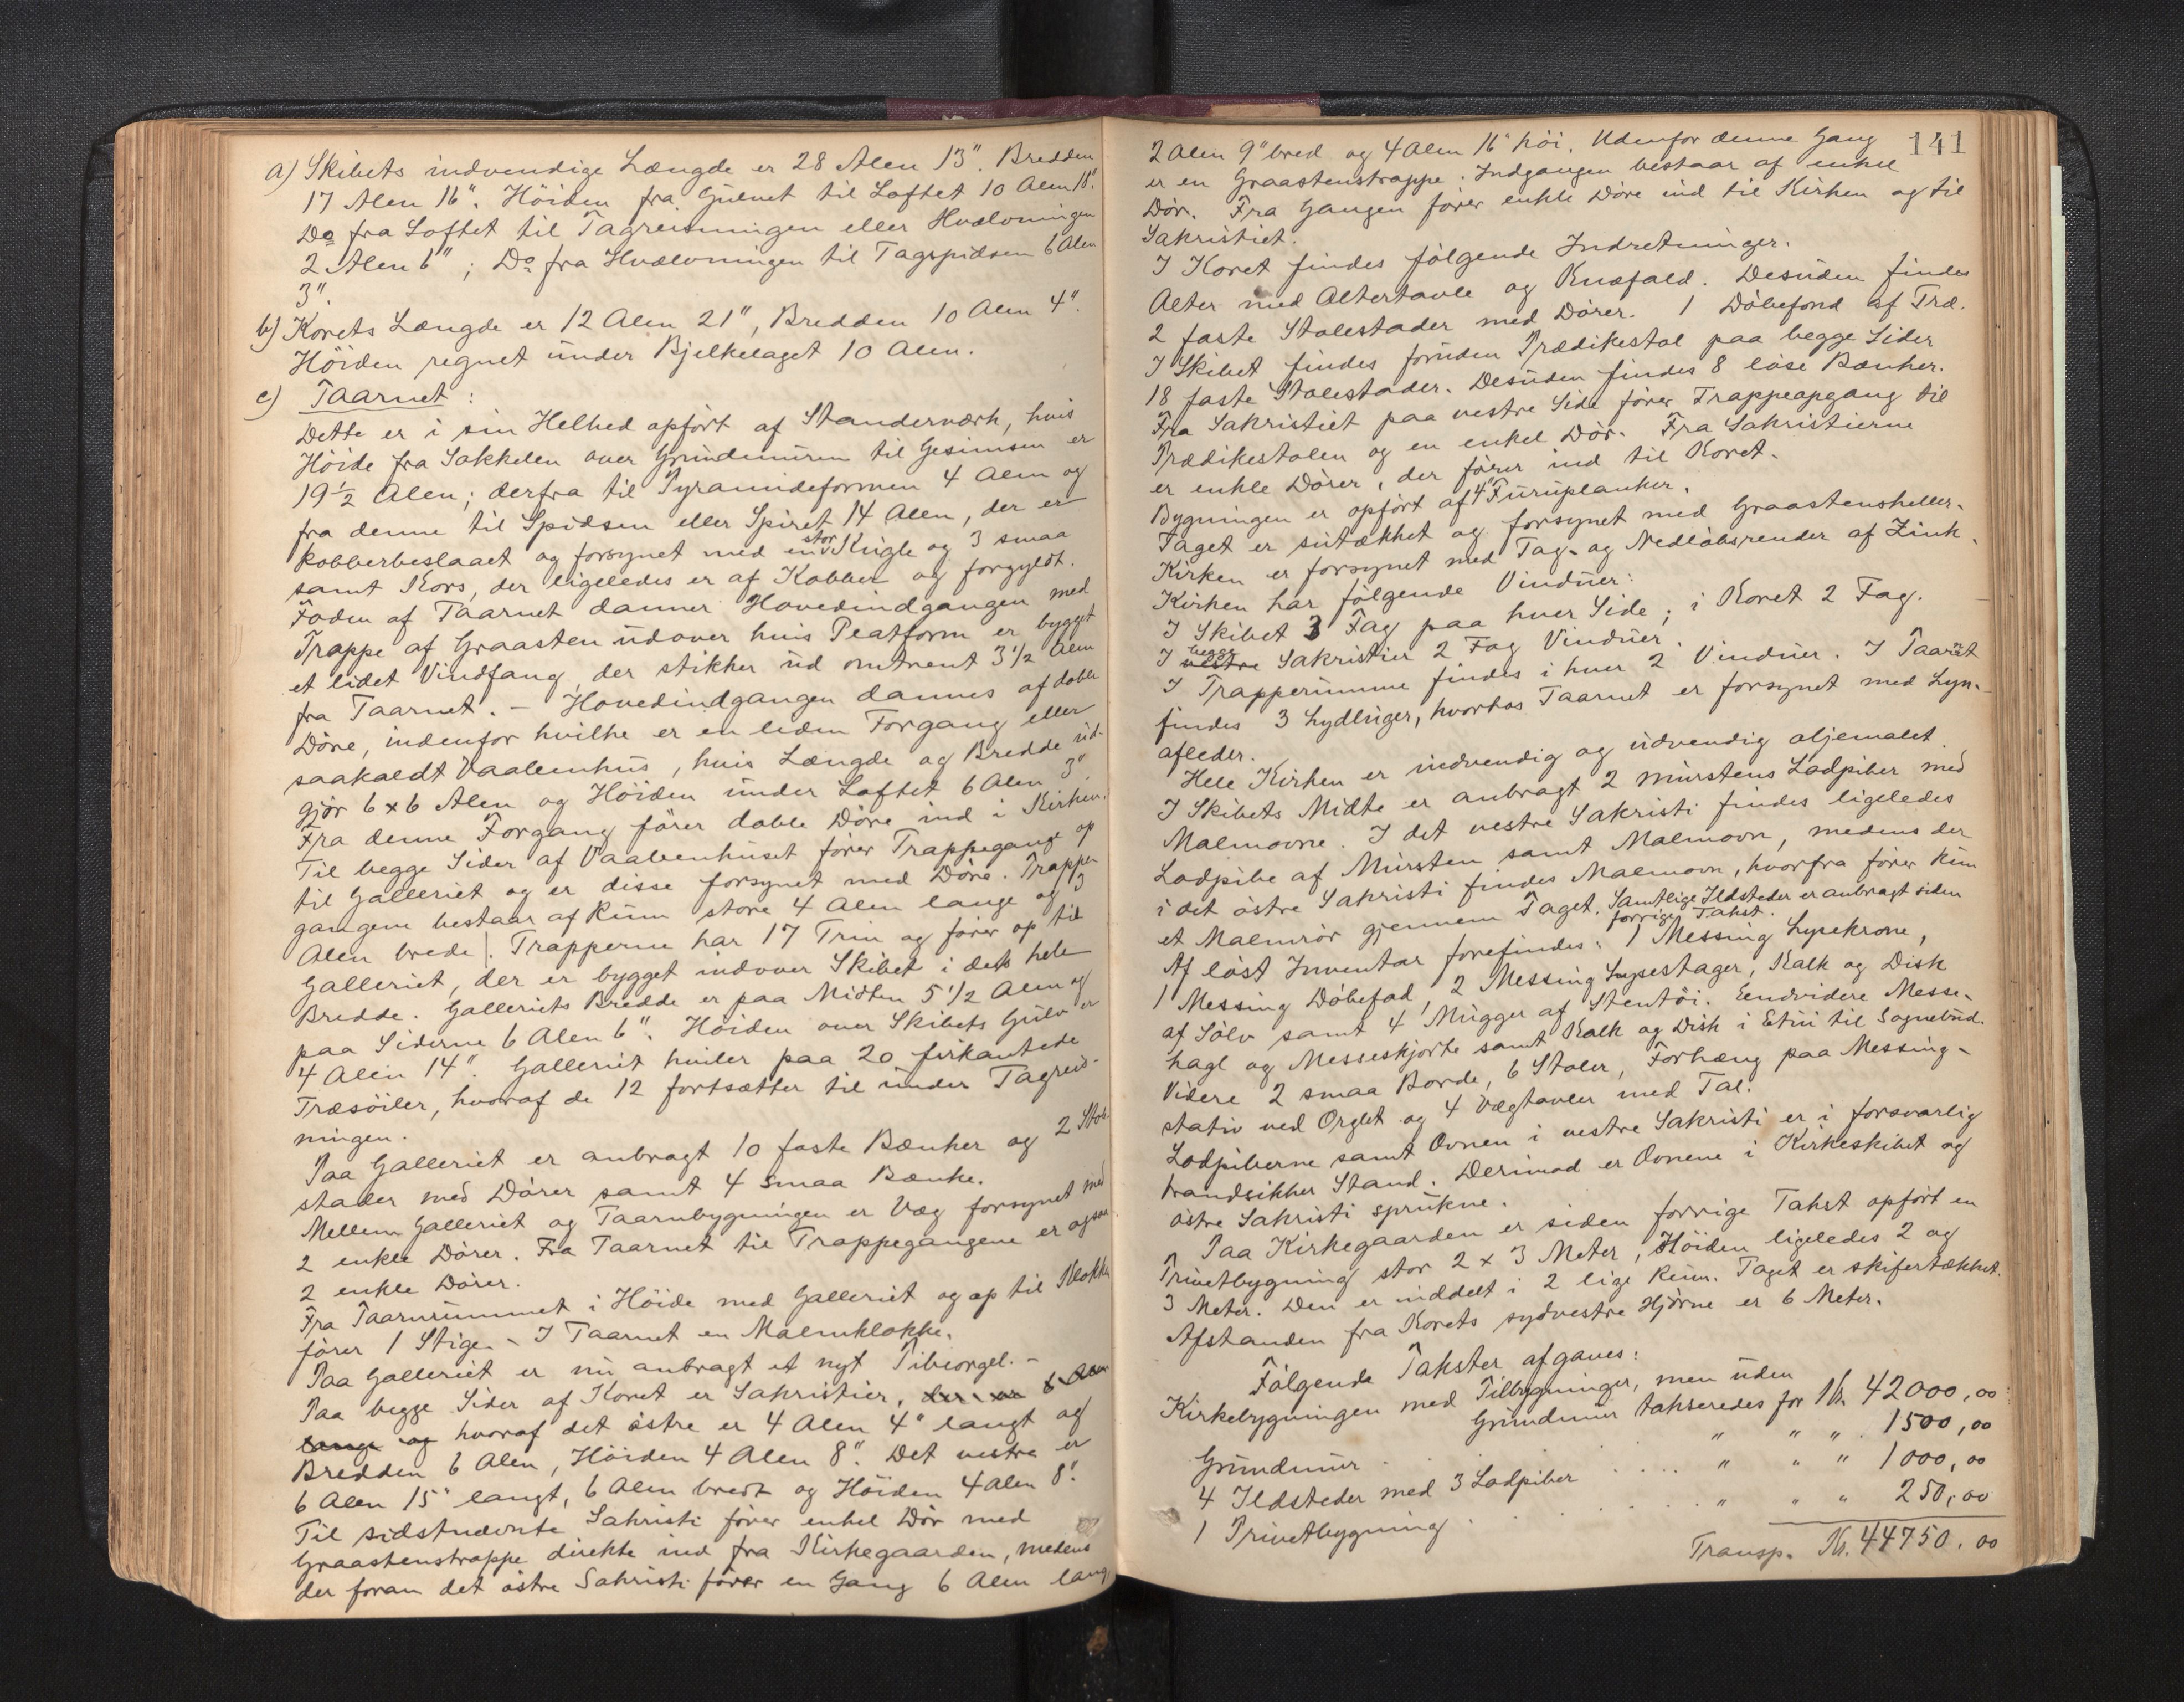 a) Skibets indvendige Længde er 28 Alen 13". Bredden
17 Alen 16". Höiden fra Gulvet til Loftet 10 Alen 18".
Do fra Loftet til Tagreisningen eller Hvælvningen
2 Alen 6"; Do fra Hvælvningen til Tagspidsen 6 Alen
3".
b) Korets Længde er 12 Alen 21", Bredden 10 Alen 4".
Höiden regnet under Bjelkelaget 10 Alen.
c) Taarnet:
Dette er i sin Helhed opfört af Standerværk, hvis
Höide fra Sokkelen over Grundmuren til Gesimsen er
19 1/2 Alen; derfra til Pyramideformen 4 Alen og
fra denne til Spidsen eller Spiret 14 Alen, der er
kobberbeslaaet og forsynet med en stor Kugle og 3 smaa
samt Kors, der ligeledes er af Kobber og forgyldt.
Foden af Taarnet danner Hovedindgangen med
Trappe af Graasten udover hvis Platform er bygget
et lidet Vindfang, der stikker ud omtrent 3 1/2 Alen
fra Taarnet. - Hovedindgangen dannes af doble
Döre, indenfor hvilke er en liden Forgang eller
saakaldt Vaabenhus, hvis Længde og Bredde ud-
gjör 6 x 6 Alen og Höiden under Loftet 6 Alen 3".
Fra denne Forgang förer doble Döre ind i Kirken.
Til begge Sider af Vaabenhuset förer Trappegange op
til Galleriet og er disse forsynet med Döre. Trappe-
gangene bestaar af Rum store 4 Alen lange og 3
Alen brede. Trapperne har 17 Trin og förer op til
Galleriet, der er bygget indover Skibet i dets hele
Bredde. Galleriets Bredde er paa Midten 5 1/2 Alen og
paa Siderne 6 Alen 6". Höiden over Skibets Gulv er
4 Alen 14". Galleriet hviler paa 20 firkantede
Træsöiler, hvoraf de 12 fortsætter til under Tagreis-
ningen.
Paa Galleriet er anbragt 10 faste Bænker og 2 Stole-
stader med Dörer samt 4 smaa Bænke.
Mellem Galleriet og Taarnbygningen er Væg forsynet med
2 enkle Dörer. Fra Taarnet til Trappegangene er ogsaa
2 enkle Dörer.
Fra Taarnrummet i Höide med Galleriet og op til Klokken
förer 1 Stige. - I Taarnet en Malmklokke.
Paa Galleriet er nu anbragt et nyt Pibeorgel. -
Paa begge Sider af Koret er Sakristier, der er 6 Alen
lange og hvoraf det östre er 4 Alen 4" langt og
Bredden 6 Alen, Höiden 4 Alen 8". Det vestre er
6 Alen 15" langt, 6 Alen bredt og Höiden 4 Alen 8".
Til sidstnævnte Sakristi förer enkel Dör med
Graastenstrappe direkte ind fra Kirkegaarden, medens
der foran det östre Sakristi förer en Gang 6 Alen lang,
141
2 Alen 9" bred og 4 Alen 16" höi. Udenfor denne Gang
er en Graastenstrappe. Indgangen bestaar af enkel
Dör. Fra Gangen förer enkle Döre ind til Kirken og til
Sakristiet.
I Koret findes fölgende Indretninger.
Alter med Altertavle og Knæfald. Desuden findes
2 faste Stolestader med Dörer. 1 Döbefond af Træ.
I Skibet findes foruden Prædikestol paa begge Sider
18 faste Stolestader. Desuden findes 8 löse Bænker.
Fra Sakristiet paa vestre Side förer Trappeopgang til
Prædikestolen og en enkel Dör. Fra Sakristierne
er enkle Dörer, der förer ind til Koret.
Bygningen er opfört af 4" Furuplanker.
Taget er sutækket og forsynet med Graastensheller.
Kirken er forsynet med Tag- og Nedlöbsrender af Zink.
Kirken har fölgende Vinduer:
I Skibet 3 Fag paa hver Side; i Koret 2 Fag.
I vestre begge Sakristier 2 Fag Vinduer.
I Trapperummene findes i hver 2 Vinduer. I Taarnet
findes 3 Lydluger, hvorhos Taarnet er forsynet med Lyn-
afleder.
Hele Kirken er indvendig og udvendig oljemalet.
I Skibets Midte er anbragt 2 murstens Ladpiber med
Malmovne. I det vestre Sakristi findes ligeledes
Ladpibe af Mursten samt Malmovn, medens der
i det östre Sakristi findes Malmovn, hvorfra förer kun
et Malmrör gjennem Taget. Samtlige Ildsteder er anbragt siden
forrige Takst.
Af löst Inventar forefindes: 1 Messing Lysekrone,
1 Messing Döbefad, 2 Messing Lysestager, Kalk og Disk
af Sölv samt 4 Mugger af Stentöi. Eendvidere Messe-
hagl og Messeskjorte samt Kalk og Disk i Etui til Sognebud.
Videre 2 smaa Borde, 6 Stoler, Forhæng paa Messing-
stativ ved Orglet og 4 Vægtavler med Tal.
Ladpiberne samt Ovnen i vestre Sakristi er i forsvarlig
brandsikker Stand. Derimod er Ovnene i Kirkeskibet og
östre Sakristi sprukne.
Paa Kirkegaarden er siden forrige Takst opfört en
Privetbygning stor 2 x 3 Meter, Höiden ligeledes 2 og
3 Meter. Den er inddelt i 2 lige Rum. Taget er skifertækket.
Afstanden fra Korets sydvestre Hjörne er 6 Meter.
Fölgende Takster afgaves:
Kirkebygningen med Tilbygninger, men uden
Grundmur takseredes for Kr. 42000,00
Grundmur . . " " " 1500,00
4 Ildsteder med 3 Ladpiber . . . . " " " 1000,00
1 Privetbygning . . . . . " " " 250,00
Transp. Kr. 44750,00